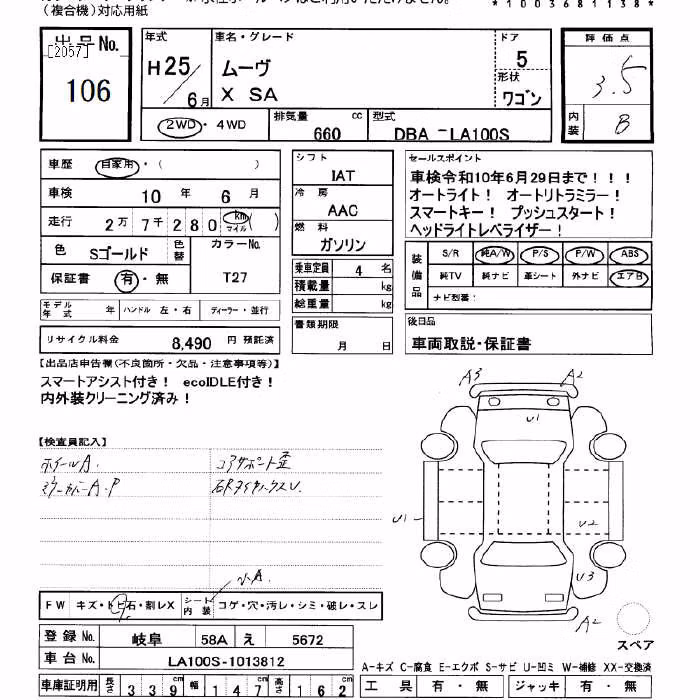 （複合機）対応用紙
*1003681138*
出品No.
[2057]
106
年式
H25/6月
車名・グレード
ムーヴ
X SA
ドア
5
形状
ワゴン
評価点
3.5
内装
B
2WD・4WD
排気量
660 cc
型式
DBA-LA100S
車歴 自家用・( )
車検 10年 6月
走行 2万7千280 km マイル ( )
色 Sゴールド 色替 カラーNo. T27
保証書 有・無
シフト
IAT
冷房
AAC
燃料
ガソリン
乗車定員 4名
積載量 kg
総重量 kg
書類期限
月 日
セールスポイント
車検令和10年6月29日まで！！！
オートライト！ オートリトラミラー！
スマートキー！ プッシュスタート！
ヘッドライトレベライザー！
装備品
S/R 純A/W P/S P/W ABS
純TV 純ナビ 革シート 外ナビ エアB
ナビ型番：
モデル年式 年 ハンドル 左・右 ディーラー・並行
リサイクル料金 8,490 円 預託済
後日品
車両取説・保証書
【出品店申告欄(不良箇所・欠品・注意事項等)】
スマートアシスト付き！ ecoIDLE付き！
内外装クリーニング済み！
【検査員記入】
ホイールA.
ミラーカバーA.P
コアサポート歪
A3
A2
U1
U1
U2
U3
A2
スペア
FW キズ・トビ石・割レX
シート内装 コゲ・穴・汚レ・シミ・破レ・スレ
登録No. 岐阜 58A え 5672
車台No. LA100S-1013812
車庫証明用 長さ 339cm 幅 147cm 高さ 162cm
A-キズ C-腐食 E-エクボ S-サビ U-凹ミ W-補修 XX-交換済
工具 有・無 ジャッキ 有・無